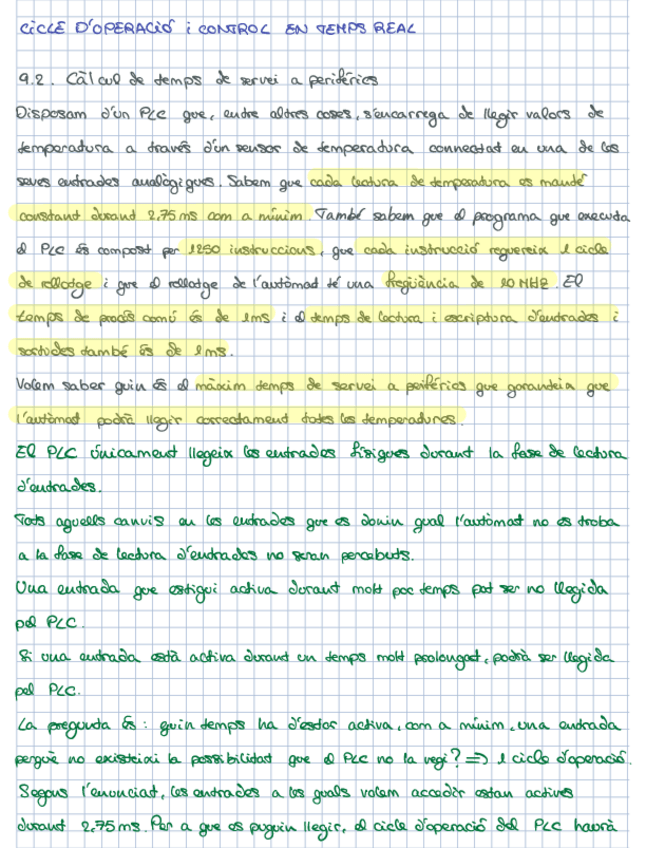 CICLE D'OPERACIÓ i CONTROL EN TEMPS REAL
9.2. Càlcul de temps de servei a perifèrics
Disposam d'un PLC que, entre altres coses, s'encarrega de llegir valors de
temperatura a través d'un sensor de temperatura connectat en una de les
seves entrades analògiques. Sabem que cada lectura de temperatura es manté
constant durant 2,75 ms com a mínim. També sabem que el programa que executa
el PLC és compost per 1250 instruccions, que cada instrucció requereix 1 cicle
de rellotge i que el rellotge de l'autòmat té una freqüència de 10 MHz. El
temps de procés comú és de 1ms i el temps de lectura i escriptura d'entrades i
sortides també és de 1ms.
Volem saber quin és el màxim temps de servei a perifèrics que garanteix que
l'autòmat podrà llegir correctament totes les temperatures.
El PLC únicament llegeix les entrades físiques durant la fase de lectura
d'entrades.
Tots aquells canvis en les entrades que es donin qual l'autòmat no es troba
a la fase de lectura d'entrades no seran percebuts.
Una entrada que estigui activa durant molt poc temps pot ser no llegida
pel PLC.
Si una entrada està activa durant un temps molt prolongat, podrà ser llegida
pel PLC.
La pregunta és: quin temps ha d'estar activa, com a mínim, una entrada
perquè no existeixi la possibilitat que el PLC no la vegi? => 1 cicle d'operació.
Segons l'enunciat, les entrades a les quals volem accedir estan actives
durant 2,75 ms. Per a que es puguin llegir, el cicle d'operació del PLC haurà